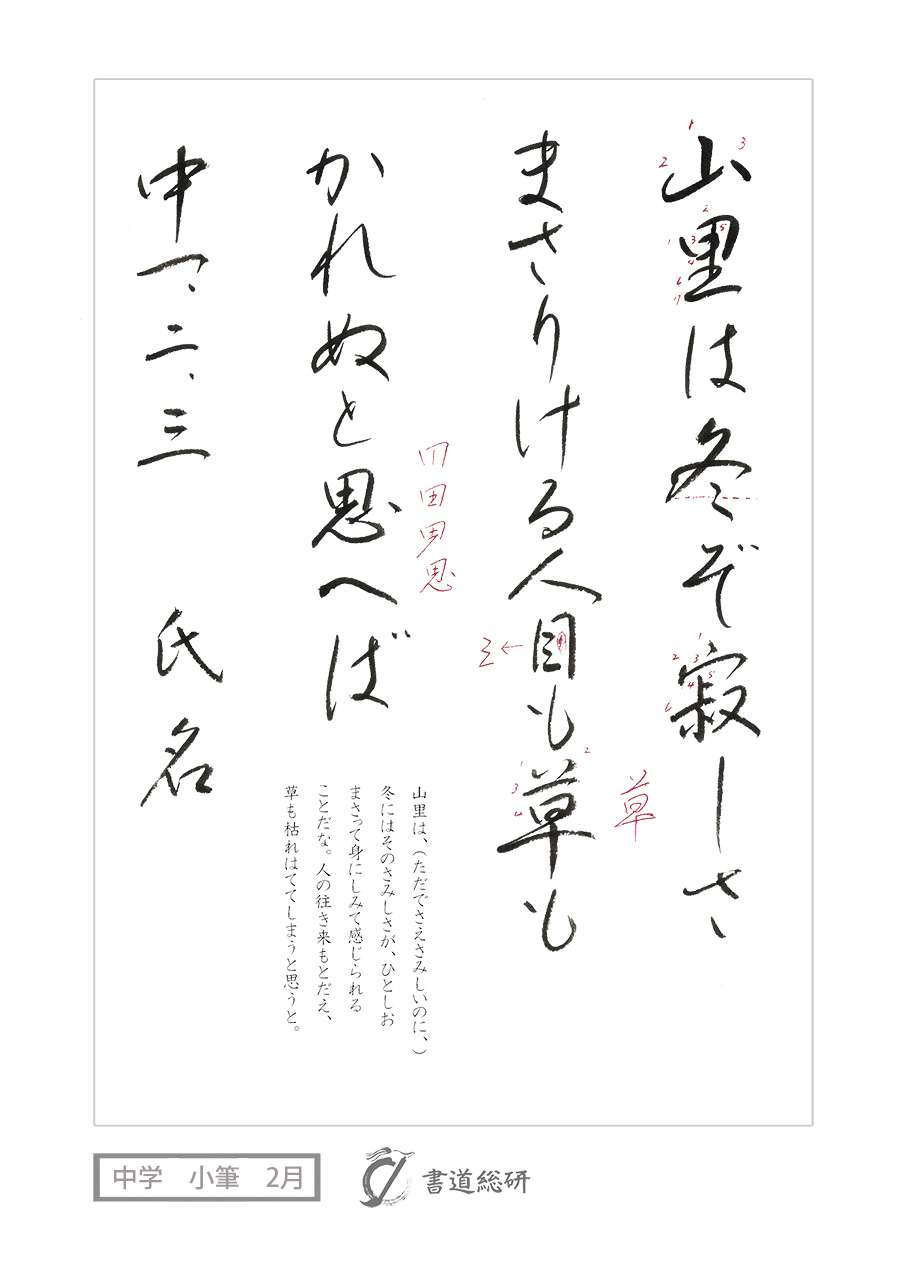 山里は冬ぞ寂しさ
まさりける人目も草も
かれぬと思へば
中一、二、三 氏名
山里は、（ただでさえさみしいのに、）
冬にはそのさみしさが、ひとしお
まさって身にしみて感じられる
ことだな。人の往き来もとだえ、
草も枯れはててしまうと思うと。
1
2
3
1
2
3
4
5
6
7
1
2
3
4
5
6
草
1
2
3
4
田
田
思
中学 小筆 2月
書道総研